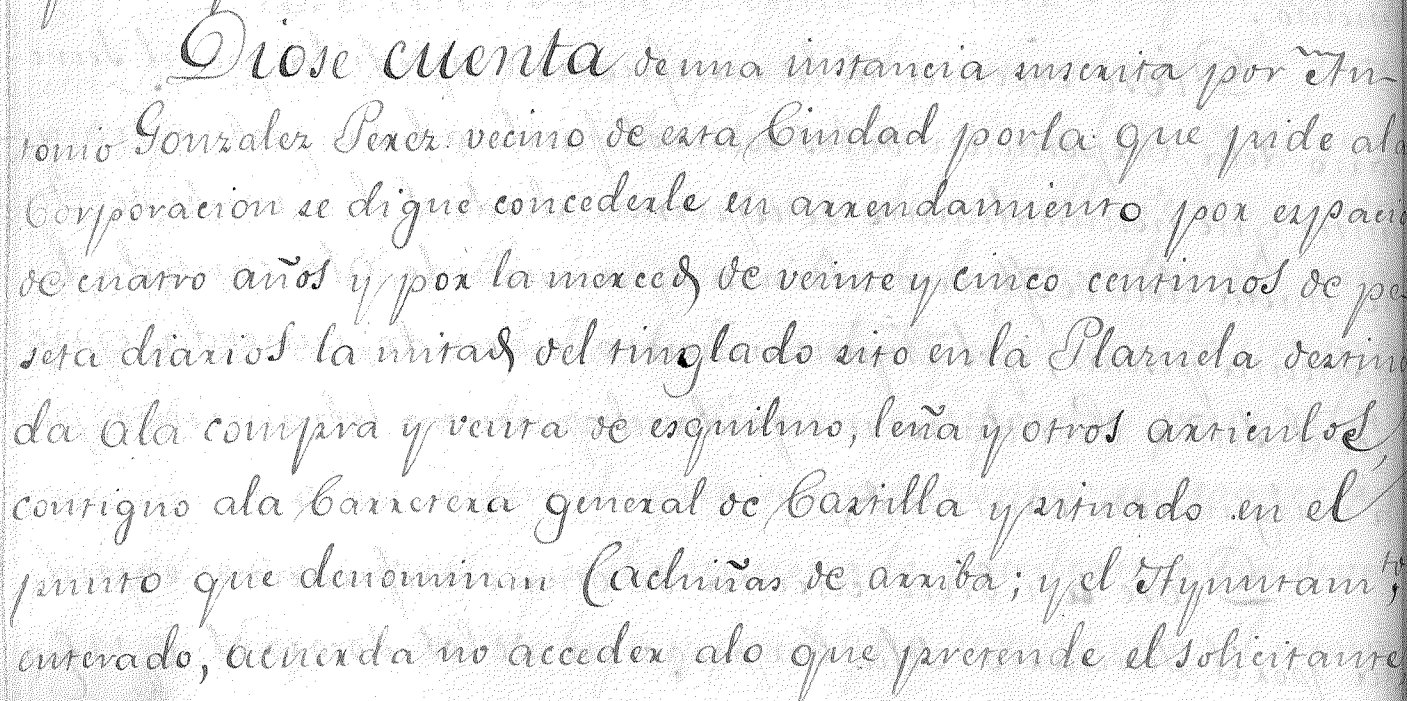 Diose cuenta de una instancia suscrita por An-
tonio Gonzalez Perez vecino de esta Ciudad por la que pide ala
Corporacion se digne concederle en arrendamiento por espacio
de cuatro años y por la merced de veinte y cinco centimos de pe-
seta diarios la mitad del tinglado sito en la Plazuela destina
da ala compra y venta de esquilmo, leña y otros articulos,
contiguo ala Carretera general de Castilla y situado en el
punto que denominan Cachiñas de arriba; y el Ayuntam.to,
enterado, acuerda no acceder alo que pretende el solicitante